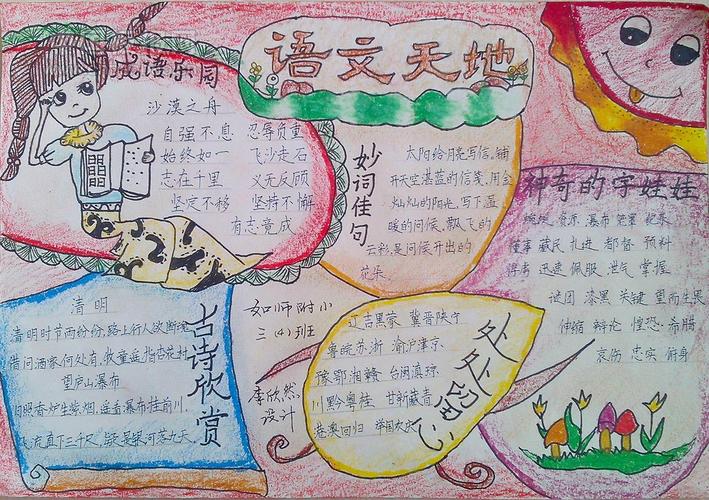 语文天地
成语乐园
沙漠之舟
自强不息 忍辱负重
始终如一 飞沙走石
志在千里 义无反顾
坚定不移 坚持不懈
有志竟成
妙词佳句
太阳给月亮写信。铺
开天空湛蓝的信笺,用金
灿灿的阳光,写下温
暖的问候。飘飞的
云彩,是问候开出的
花朵
神奇的字娃娃
瀑布 笼罩
董事 藏民 扎进 都督 预料
迅速 佩服 泄气 掌握
谜团 漆黑 关键 望而生畏
伸缩 辩论 惶恐 希腊
哀伤 忠实 俯身
古诗欣赏
清明
清明时节雨纷纷,路上行人欲断魂
借问酒家何处有,牧童遥指杏花村
望庐山瀑布
日照香炉生紫烟,遥看瀑布挂前川,
飞流直下三千尺,疑是银河落九天。
如师附小
三(4)班
李欣然
设计
处处留心
辽吉黑蒙 冀晋陕宁
粤皖苏浙 渝沪津京
豫鄂湘赣 台闽滇琼
川黔粤桂 甘新藏青
港澳回归 举国欢庆